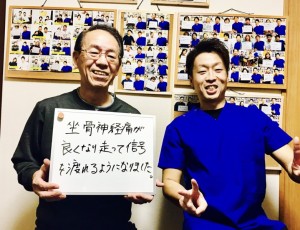 坐骨神経痛が
良くなり走って信号
も渡れるようになりました。